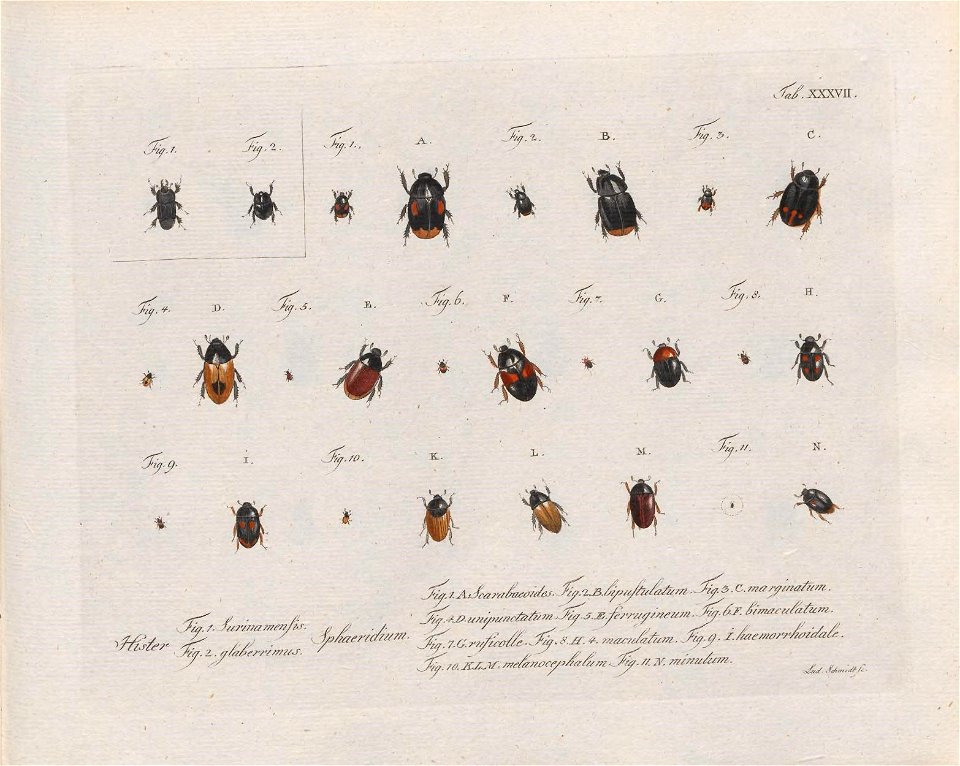 Tab. XXXVII.
Fig. 1. Fig. 2. Fig. 1. A. Fig. 2. B. Fig. 3. C.
Fig. 4. D. Fig. 5. E. Fig. 6. F. Fig. 7. G. Fig. 8. H.
Fig. 9. I. Fig. 10. K. L. M. Fig. 11. N.
Hister
Fig. 1. Surinamensis.
Fig. 2. glaberrimus.
Sphaeridium.
Fig. 1. A. Scarabaeoides. Fig. 2. B. bipustulatum. Fig. 3. C. marginatum.
Fig. 4. D. unipunctatum. Fig. 5. E. ferrugineum. Fig. 6. F. bimaculatum.
Fig. 7. G. ruficolle. Fig. 8. H. 4. maculatum. Fig. 9. I. haemorrhoidale.
Fig. 10. K.L.M. melanocephalum. Fig. 11. N. minutum.
Lud. Schmidt sc.